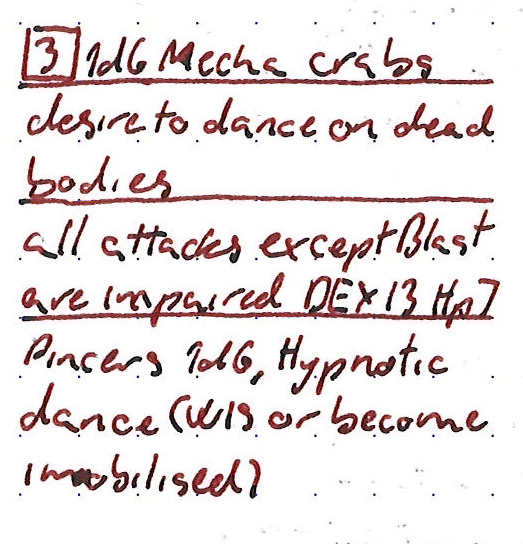 3 1d6 Mecha crabs
desire to dance on dead
bodies
all attacks except Blast
are impaired DEX 13 Hp7
Pincers 1d6, Hypnotic
dance (WIS or become
imobilised)